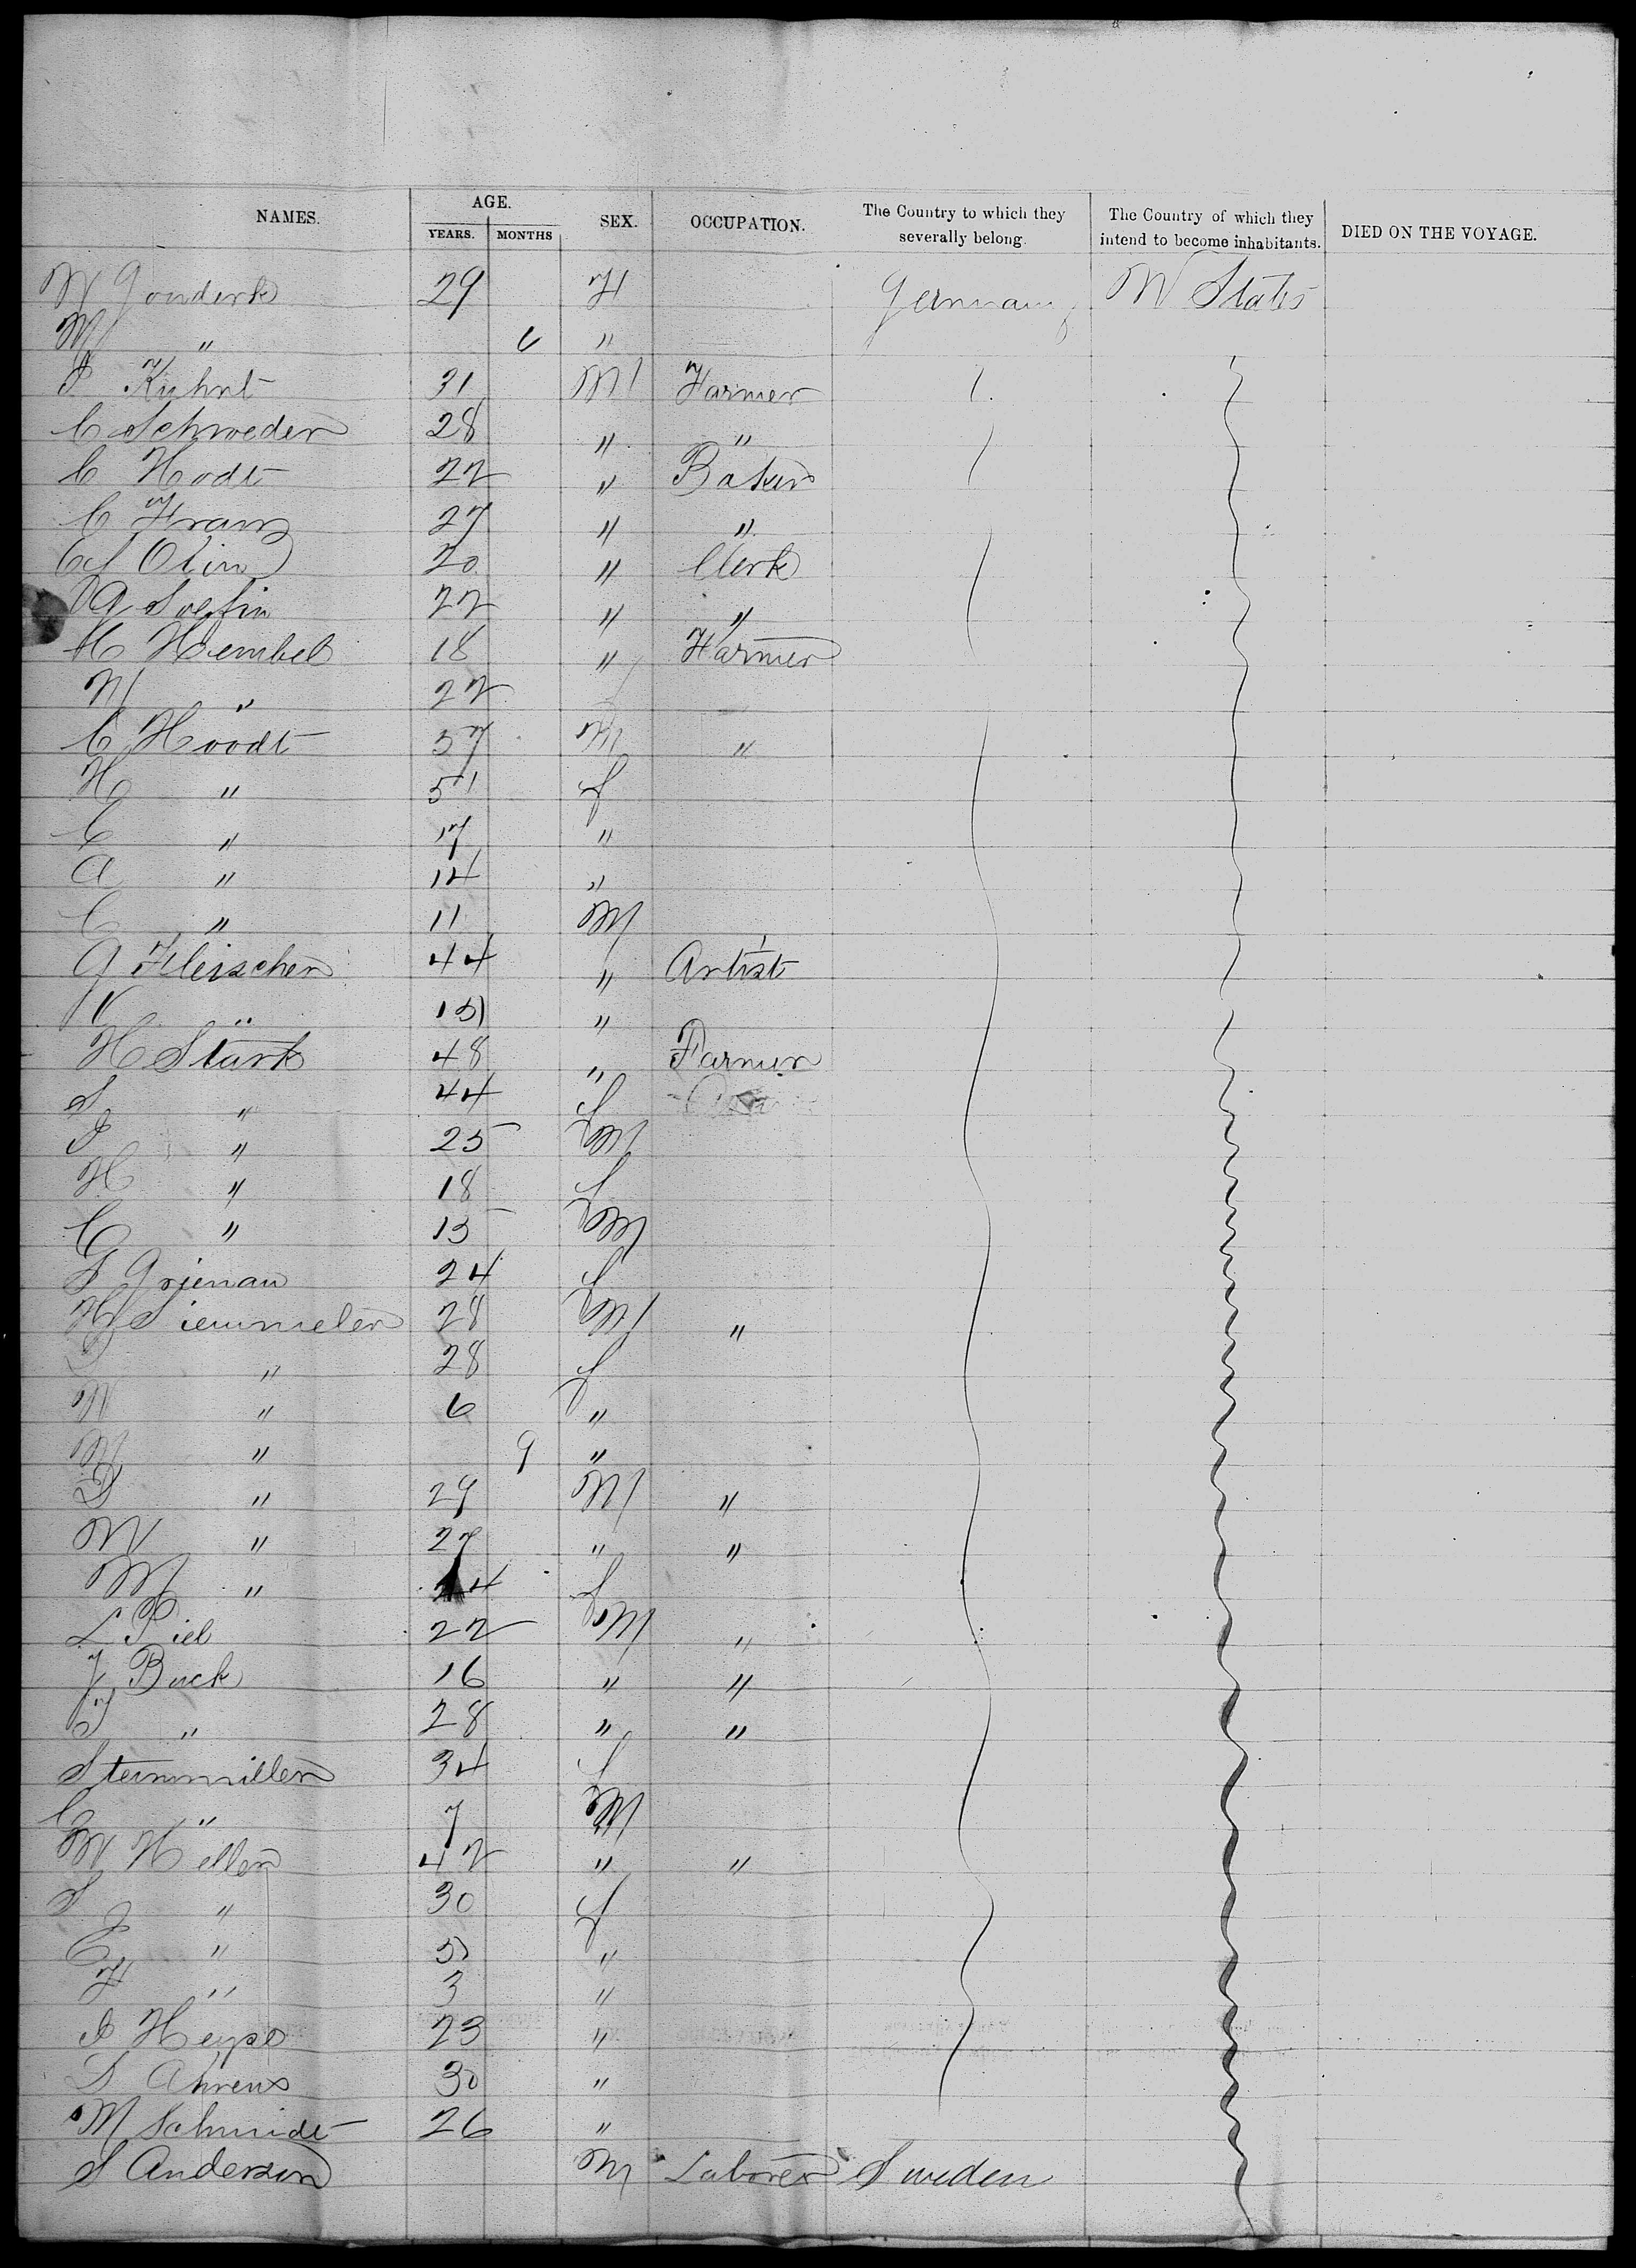 NAMES. AGE. SEX. OCCUPATION. The Country to which they severally belong. The Country of which they intend to become inhabitants. DIED ON THE VOYAGE.
YEARS. MONTHS
W Gonderk 29 F Germany W States
M " 6 "
I Kuhnt 31 M Farmer
C Schroeder 28 " "
C Hodt 22 " Baker
C Franz 27 " "
C S Olin 20 " Clerk
G Solfin 22 " "
H Hembel 18 " Farmer
N " 22
C Hoodt 57 M "
H " 51 f
C " 17 "
A " 14 "
C " 11 M
G Fleischer 44 " Artist
V " 15 "
H Stark 48 " Farmer
S " 44 f
I " 25 M
H " 18 f
C " 15 M
G Grienau 24 f
H Siemmeler 28 M "
D " 28 f
W " 6 "
M " 9 "
D " 29 M "
W " 27 " "
M " 24 f
L Piel 22 M "
J Buck 16 " "
J " 28 " "
Steinmiller 34 f
C " 7 M
W Heller 42 " "
S " 30 f
C " 5 "
F " 3 "
I Heyse 23 "
D Ahrens 30 "
M Schmidt 26 "
S Anderson M Laborer Sweden